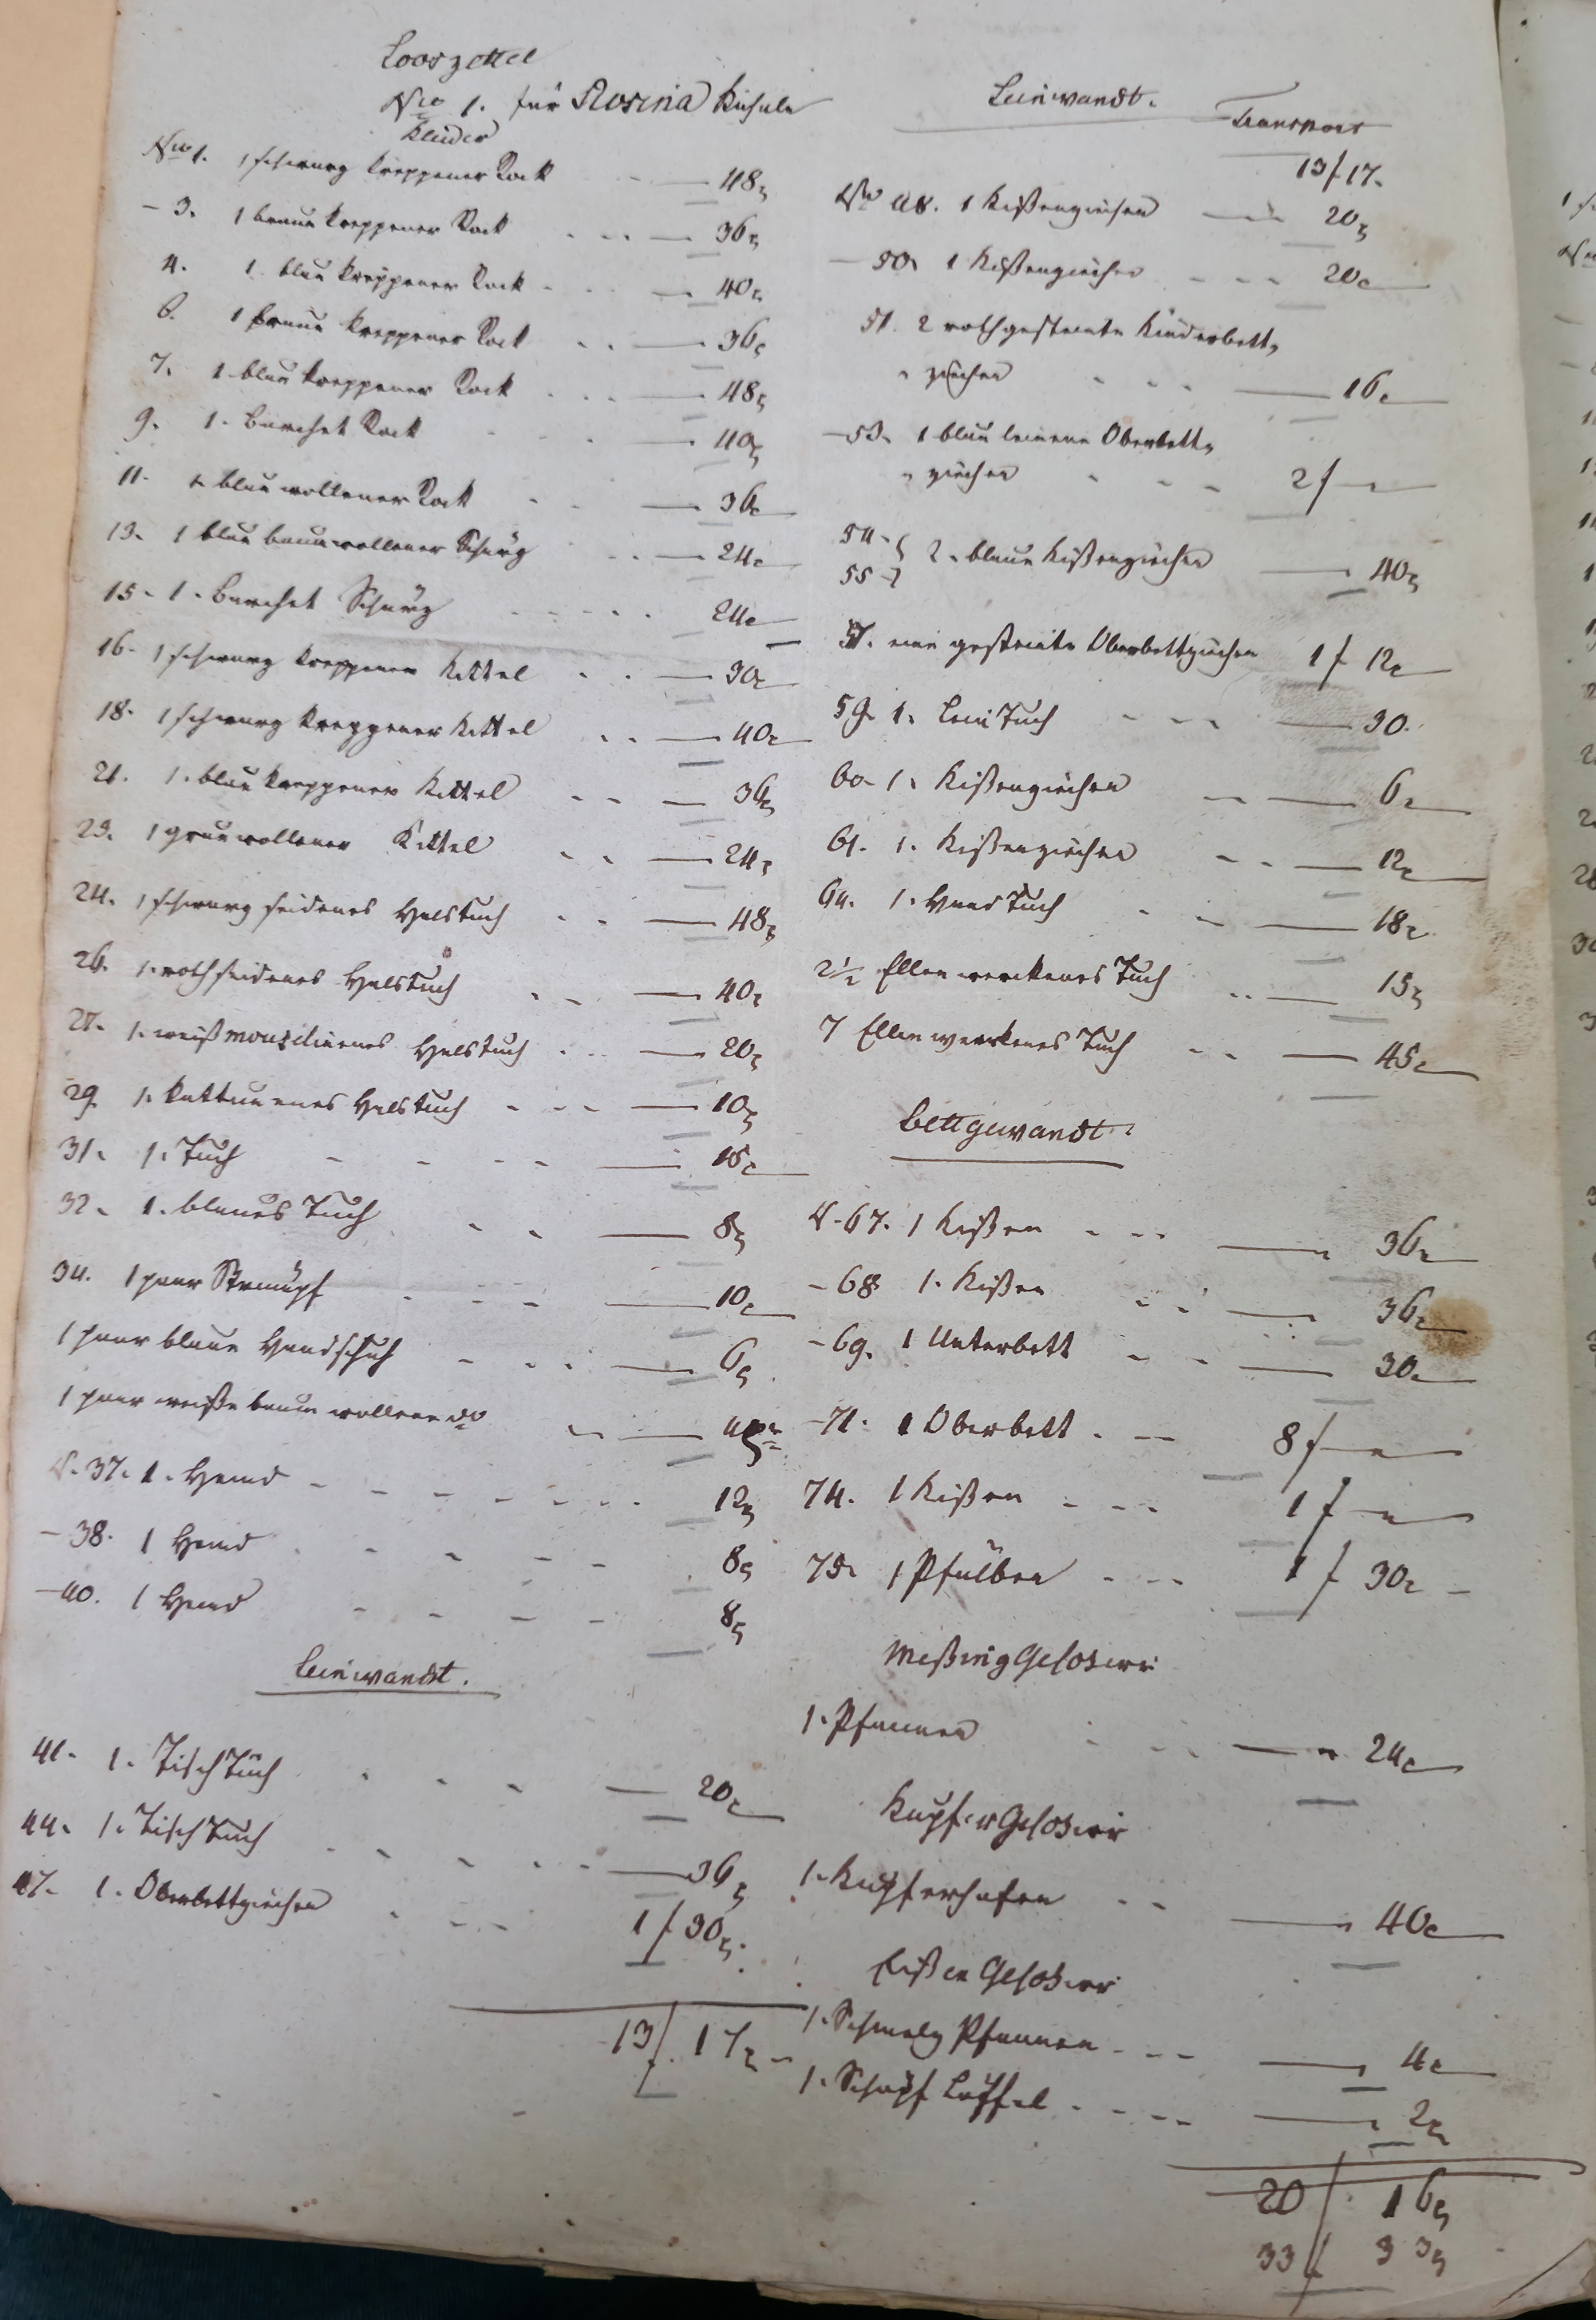 Looszettel
Nro 1. für Rosina
Kleider
Nro 1. 1 schwarz kreppener Rock — 48x
- 3. 1 braun kreppener Rock - - - — 36x
4. 1 blau kreppener Rock - - — 40x
6. 1 braun kreppener Rock - - — 36x
7. 1 blau kreppener Rock - - - — 48x
9. 1. Barchet Rock - - — 40x
11. 1 blau wollener Rock - - — 36x
13. 1 blau baumwollener Schurz - - — 24x
15. 1. Barchet Schurz - - - - - 24x
16. 1 schwarz kreppener Kittel - - — 30x
18. 1 schwarz kreppener Kittel - - — 40x
21. 1. blau kreppener Kittel - - — 36x
23. 1 grau wollener Kittel - - — 24x
24. 1 schwarz seidenes Halstuch - - — 48x
26. 1. roth seidenes Halstuch - - — 40x
27. 1. weiß mouslinenes Halstuch - - — 20x
29. 1. kattunenes Halstuch - - - — 10x
31. 1. Tuch - - - - — 15x
32. 1. blaues Tuch - - — 8x
34. 1 paar Strümpf - - - - — 10x
1 paar blaue Handschuh - - - — 6x
1 paar weiße baumwollene do - — 4x
N. 37. 1. Hemd - - - - - - - 12x
- 38. 1 Hemd - - - - - 8x
- 40. 1 Hemd - - - - 8x
Leinwandt.
41. 1. Tisch Tuch - - - — 20x
44. 1. Tisch Tuch - - - - - — 36x
47. 1. Oberbettziechen - - - 1 f 30x.
13 f. 17x -
Leinwandt.
Transport
13 f 17.
Nro 48. 1 Kißenziechen — 20x
- 50. 1 Kißenziechen - - - 20x
51. 2 rothgestreimte Kinderbett=
= ziechen - - - — 16x
- 53. 1 blau leinene Oberbett=
= ziechen - - - 2 f —
54. }
55 } 2. blaue Kißenziechen — 40x
57. eine gestreimte Oberbettziechen 1 f 12x
59. 1. Lein Tuch - - - — 30.
60. 1. Kißenziechen - — 6x
61. 1. Kißenziechen - - — 12x
64. 1. Tuch - - — 18x
2 1/2 Ellen werckenes Tuch - - — 15x
7 Ellen werckenes Tuch - - — 45x
Bettgewandt.
N. 67. 1 Kißen - - - — 36x
- 68. 1. Kißen - - — 36x
- 69. 1 Unterbett - - — 30x
- 71. 1 Oberbett - - 8 f —
74. 1 Kißen - - - 1 f —
75. 1 Pfulben - - - 1 f 30x -
Meßing Geschirr
1. Pfannen - - - — 24x
Kupfer Geschirr
1. Kupferhafen - - — 40x
Eißen Geschirr
1. Schmalz Pfannen - - - — 4x
1. Schöpf Löffel - - - - — 2x
20 f. 16x
33 f 33x